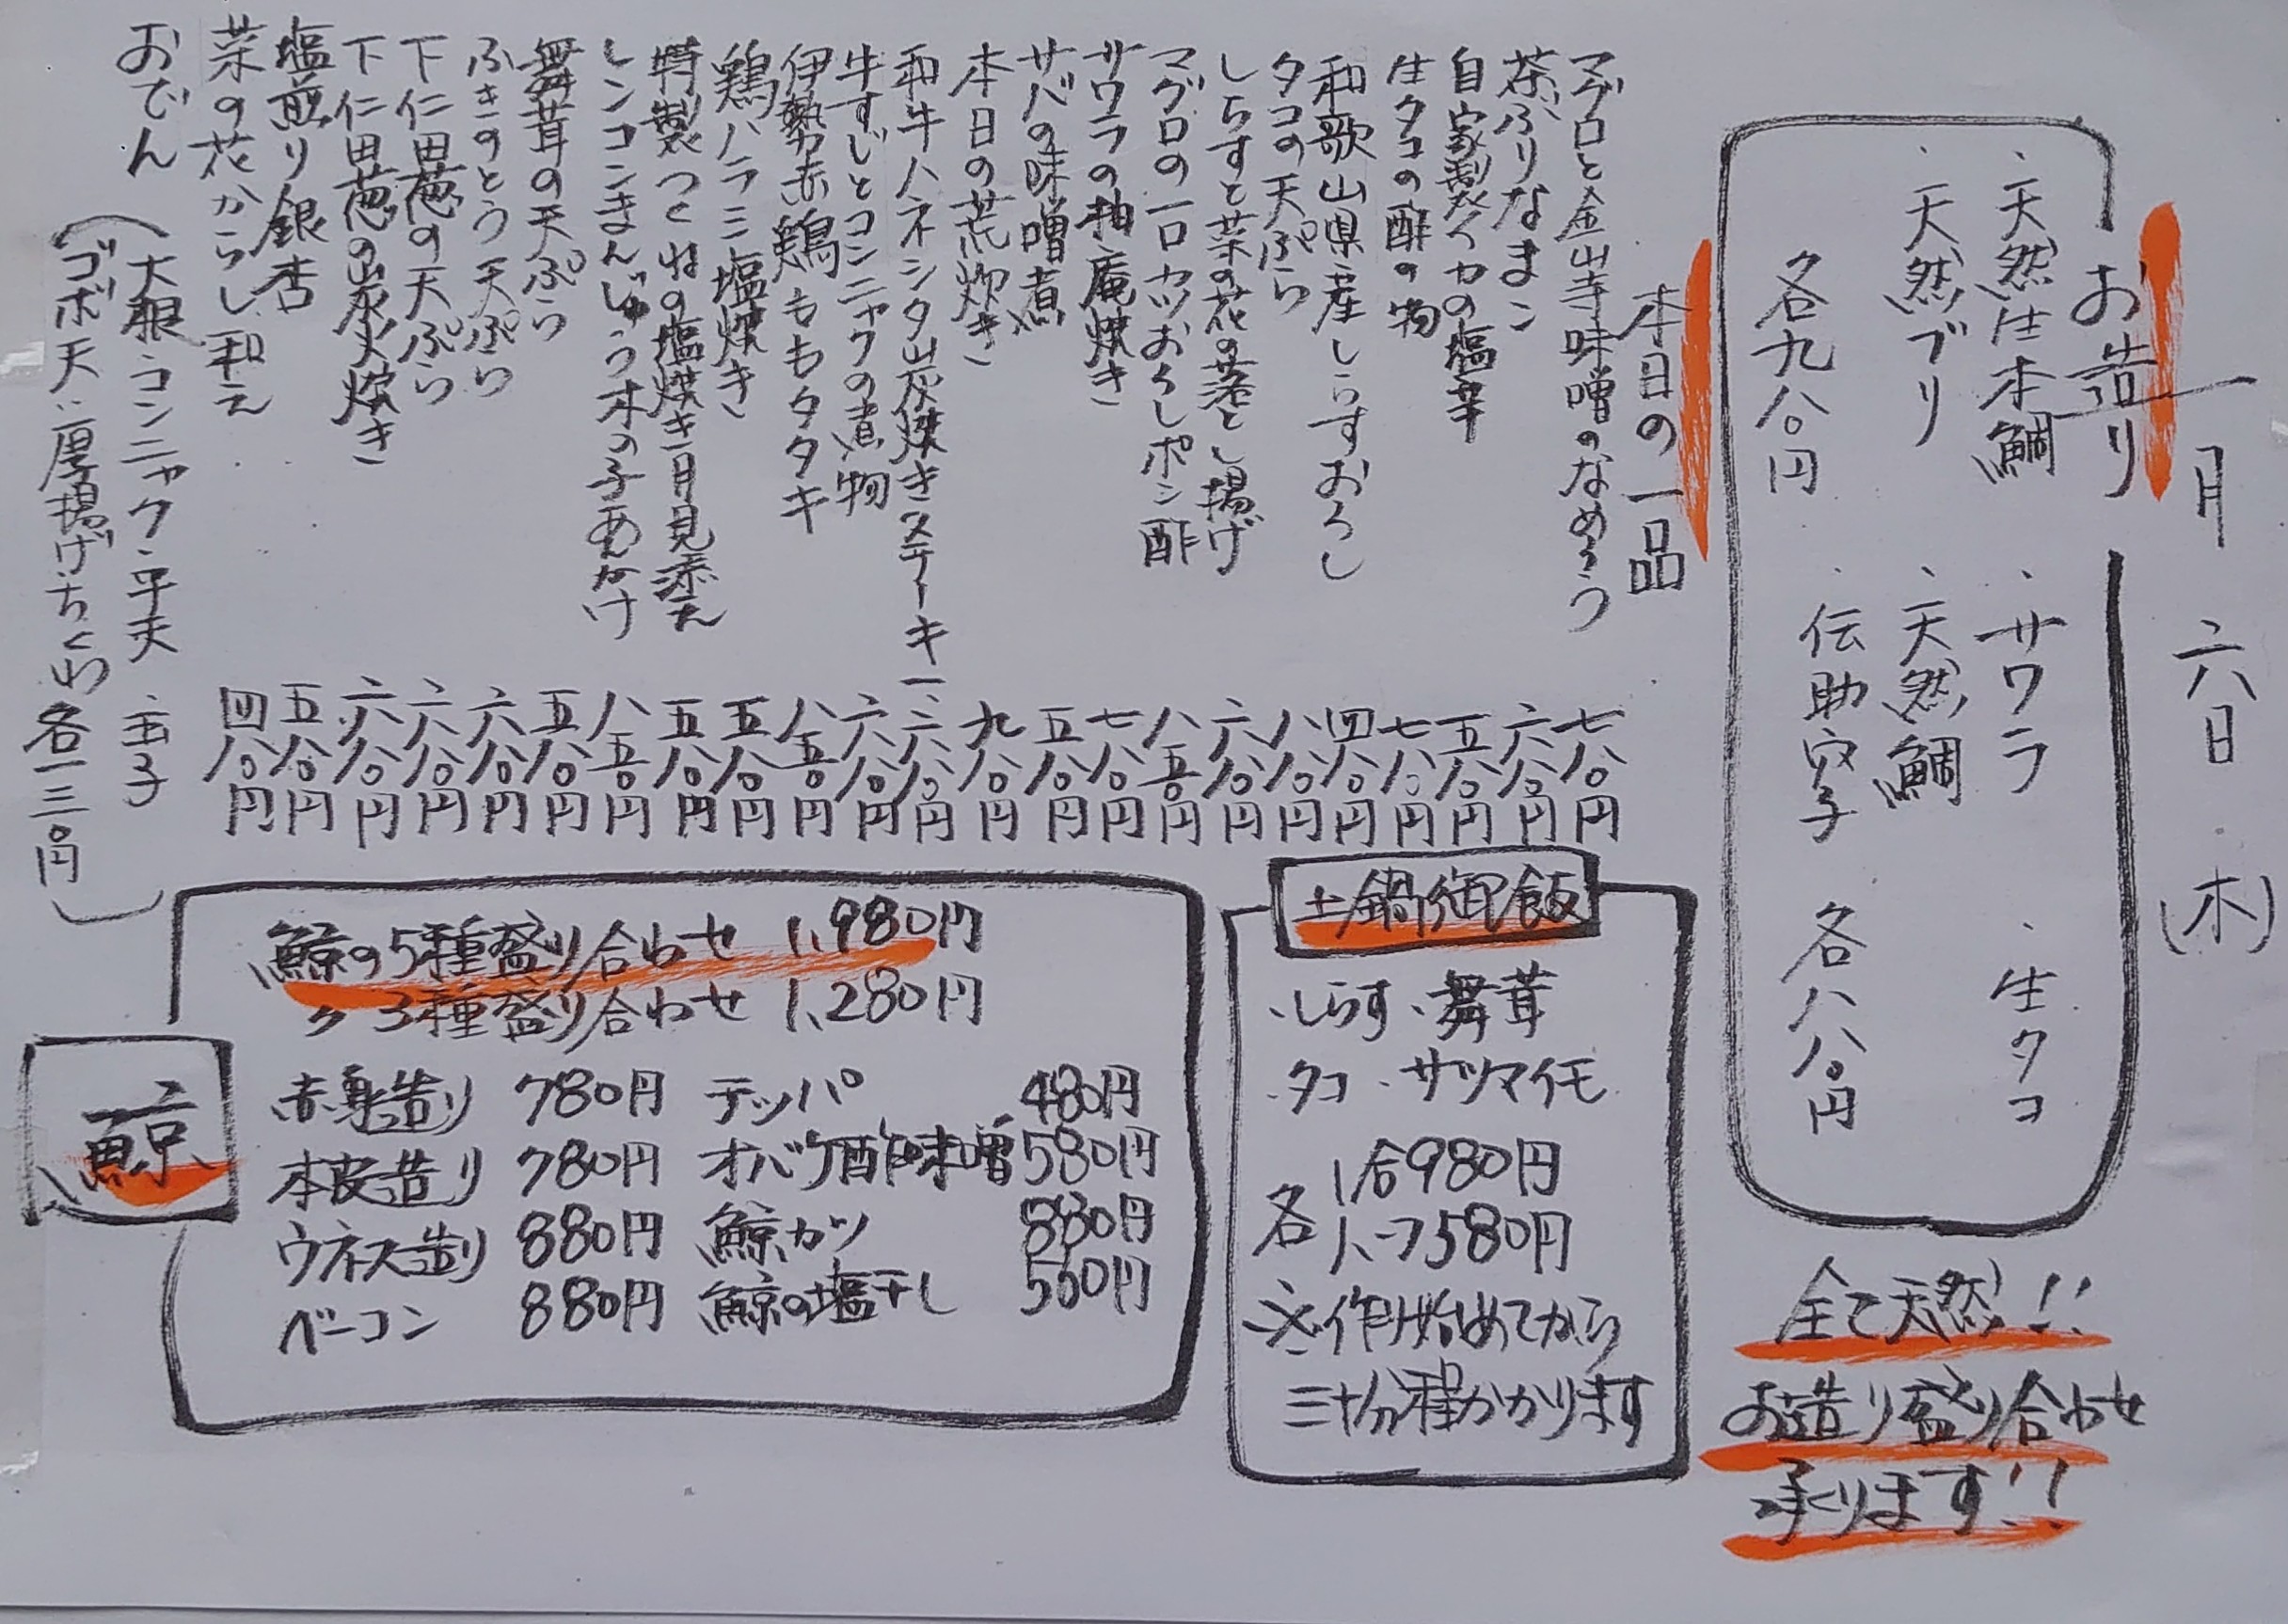 一月六日(木)
お造り
・天然生本鮪 ・サワラ ・生タコ
・天然ブリ ・天然鯛
各九八〇円 ・伝助穴子 各八八〇円
全て天然!!
お造り盛り合わせ
承ります!!
本日の一品
マグロと金山寺味噌のなめろう 七八〇円
茶ぶりなまこ 六八〇円
自家製イカの塩辛 五八〇円
生タコの酢の物 七八〇円
和歌山県産しらすおろし 四八〇円
タコの天ぷら 八八〇円
しらすと菜の花の落とし揚げ 六八〇円
マグロの一口カツおろしポン酢 八五〇円
サワラの柚庵焼き 七八〇円
サバの味噌煮 五八〇円
本日の荒炊き 九八〇円
和牛ハネシタ炭焼きステーキ 一、六八〇円
牛すじとコンニャクの煮物 六八〇円
伊勢赤鶏ももタタキ 八五〇円
鶏ハラミ塩焼き 五八〇円
特製つくねの塩焼き月見添え 五八〇円
レンコンまんじゅう木の子あんかけ 八五〇円
舞茸の天ぷら 五八〇円
ふきのとう天ぷら 六八〇円
下仁田葱の天ぷら 六八〇円
下仁田葱の炭火焼き 六八〇円
塩煎り銀杏 五八〇円
菜の花からし和え 四八〇円
おでん
(大根・コンニャク・平天・玉子
ゴボ天・厚揚げ・ちくわ 各一三〇円)
土鍋御飯
・しらす・舞茸
・タコ・サツマイモ
各 1合980円
ハーフ580円
※作り始めてから
三十分程かかります
鯨
鯨の5種盛り合わせ 1,980円
〃 3種盛り合わせ 1,280円
赤身造り 780円 テッパ 480円
本皮造り 780円 オバケ酢味噌 580円
ウネス造り 880円 鯨カツ 880円
ベーコン 880円 鯨の塩干し